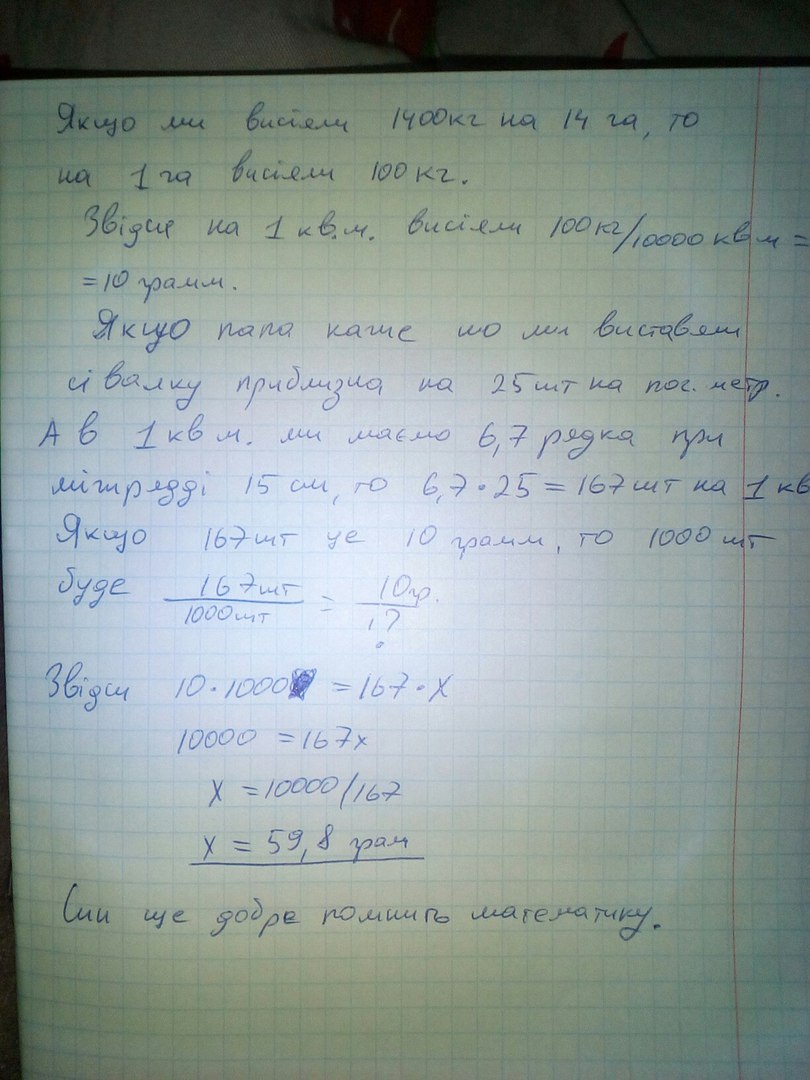 Якщо ми висіяли 1400кг на 14 га, то
на 1 га висіяли 100 кг.
Звідси на 1 кв.м. висіяли 100кг/10000 кв м =
=10 грамм.
Якщо папа каже що ми виставяли
сівалку приблизна на 25 шт на пог. метр.
А в 1 кв м. ми маємо 6,7 рядка при
міжрядді 15 см, то 6,7·25=167 шт на 1 кв
Якщо 167 шт це 10 грамм, то 1000 шт
буде 167шт/1000шт = 10гр./?
Звідси 10·1000 = 167·х
10000 = 167х
х = 10000/167
х = 59,8 грам
Син ще добре помнить математику.